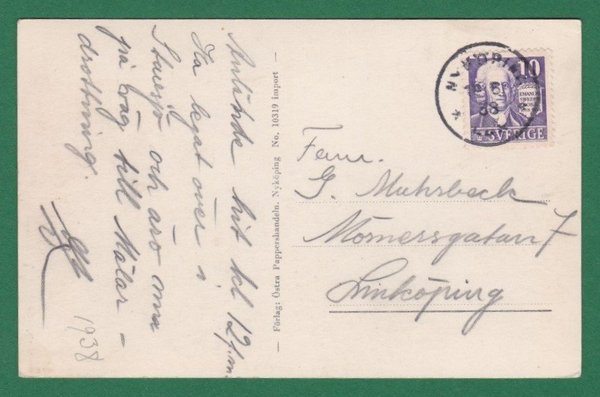 Anlände hit kl 12 f.m.
Ha legat över i
Stavsjö och äro nu
på väg till Mälar-
drottning.
1938
Förlag: Östra Pappershandeln. Nyköping No. 10319 import
NYKÖPING
38
10
EMANUEL
SVERIGE
Fam.
G. Muhrbeck
Mörnersgatan 7
Linköping